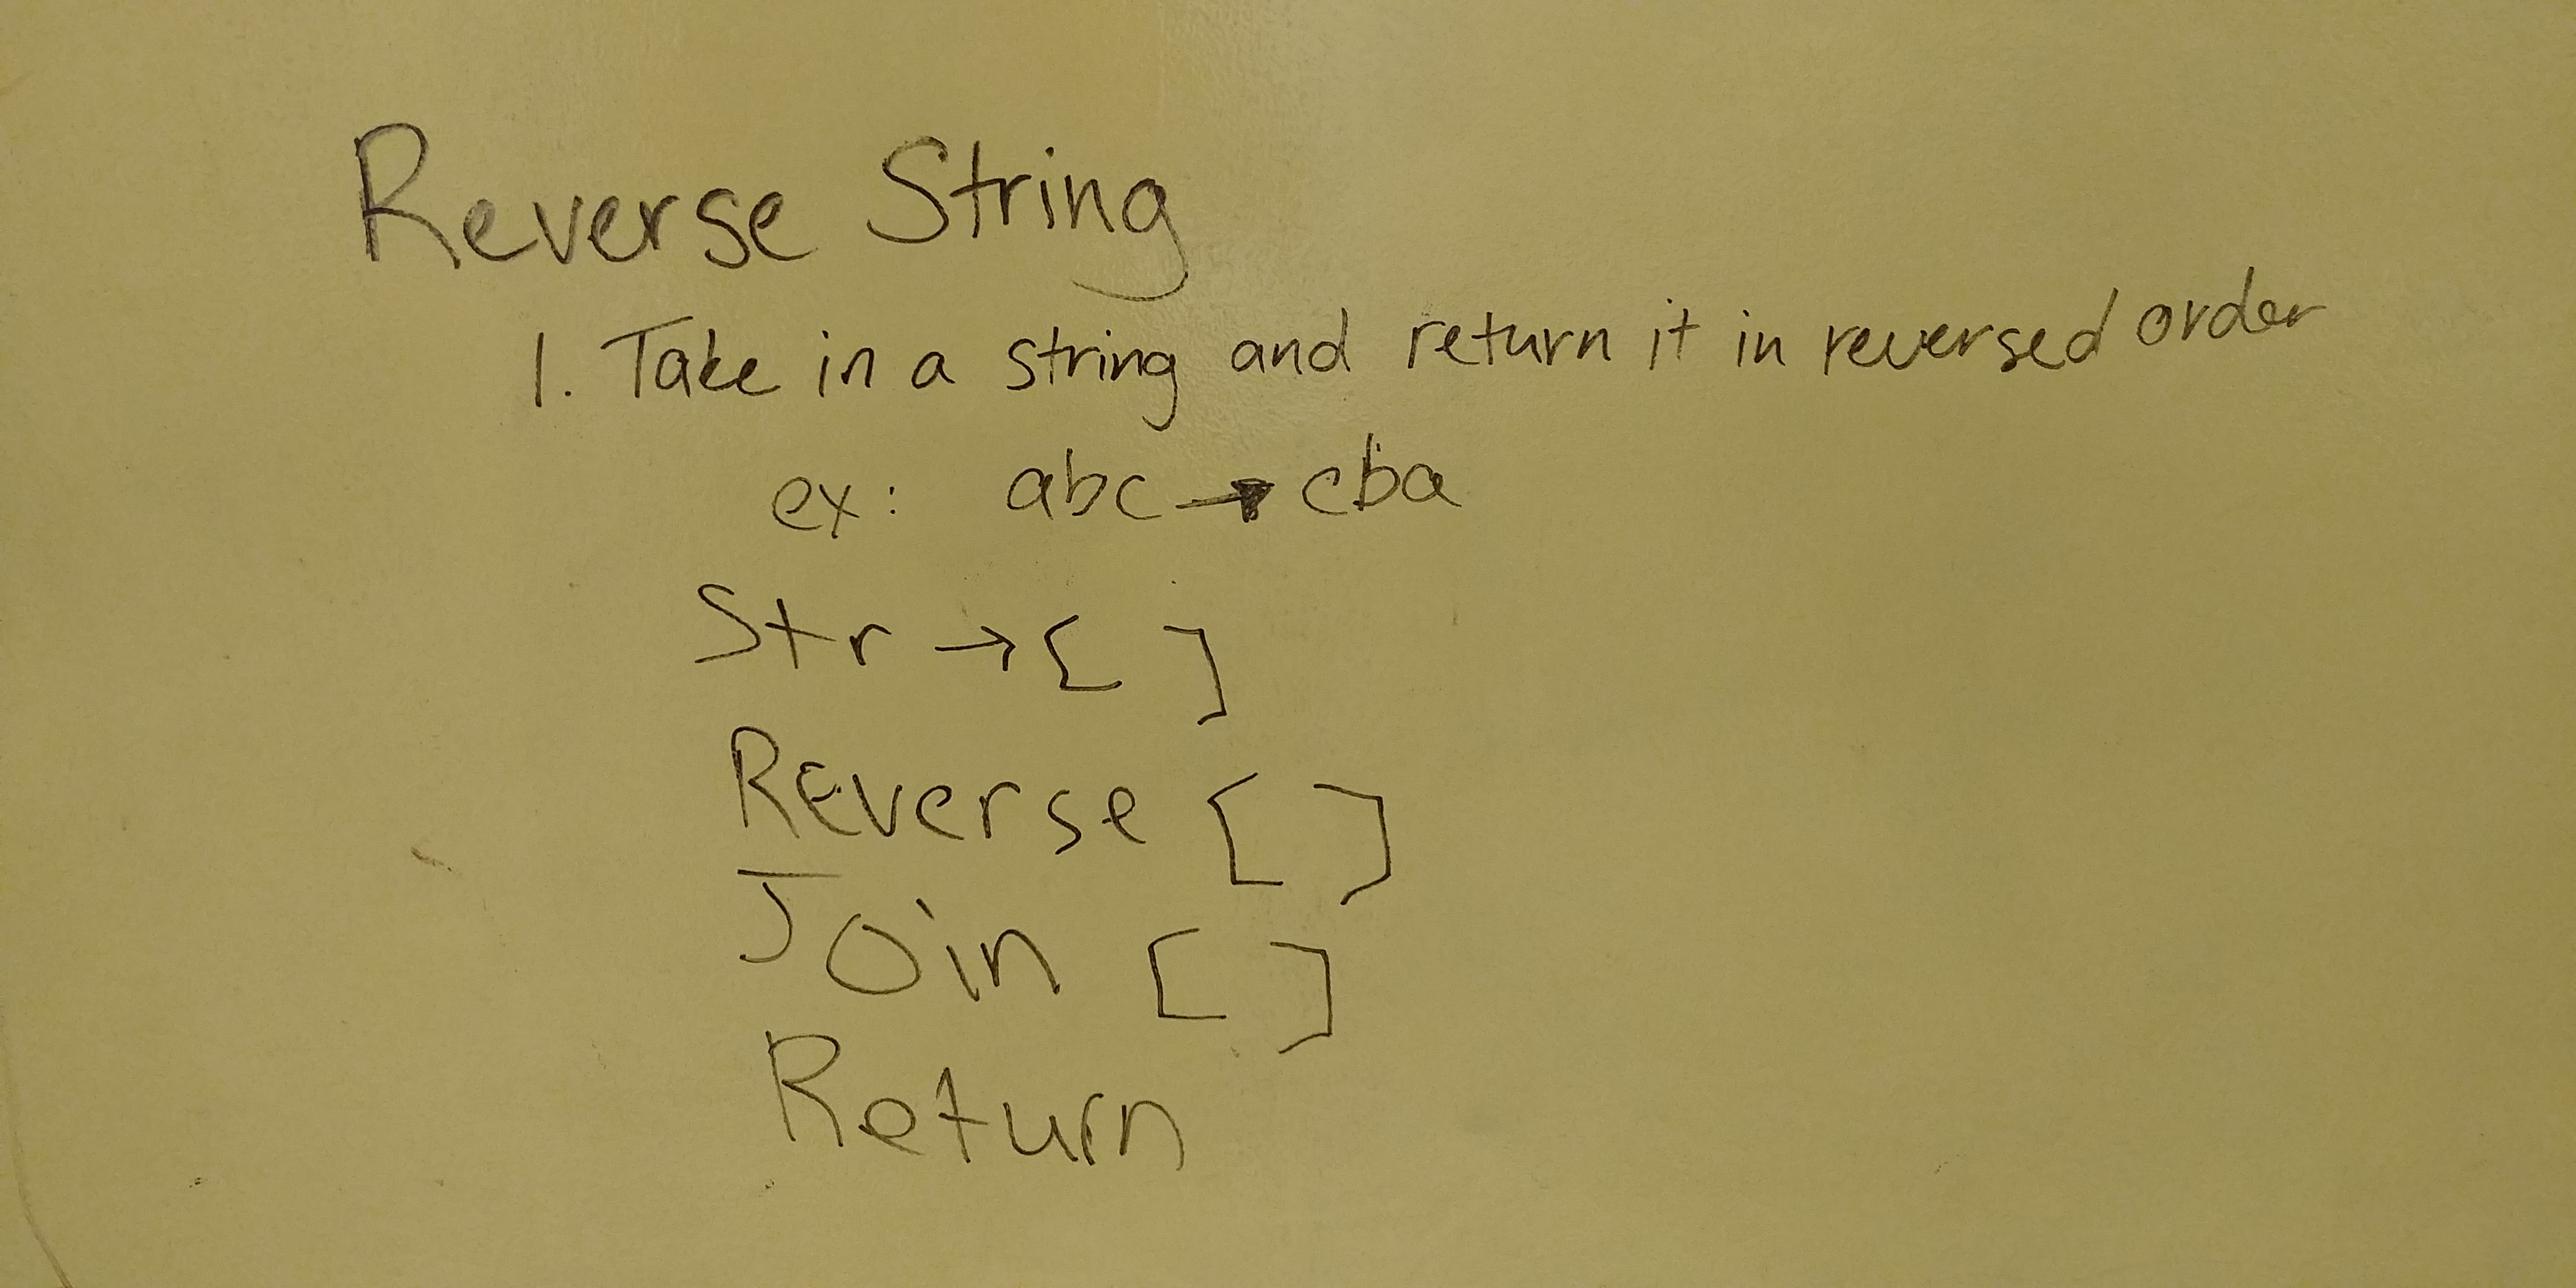 Reverse String
1. Take in a string and return it in reversed order
ex: abc → cba
Str → [ ]
Reverse [ ]
Join [ ]
Return